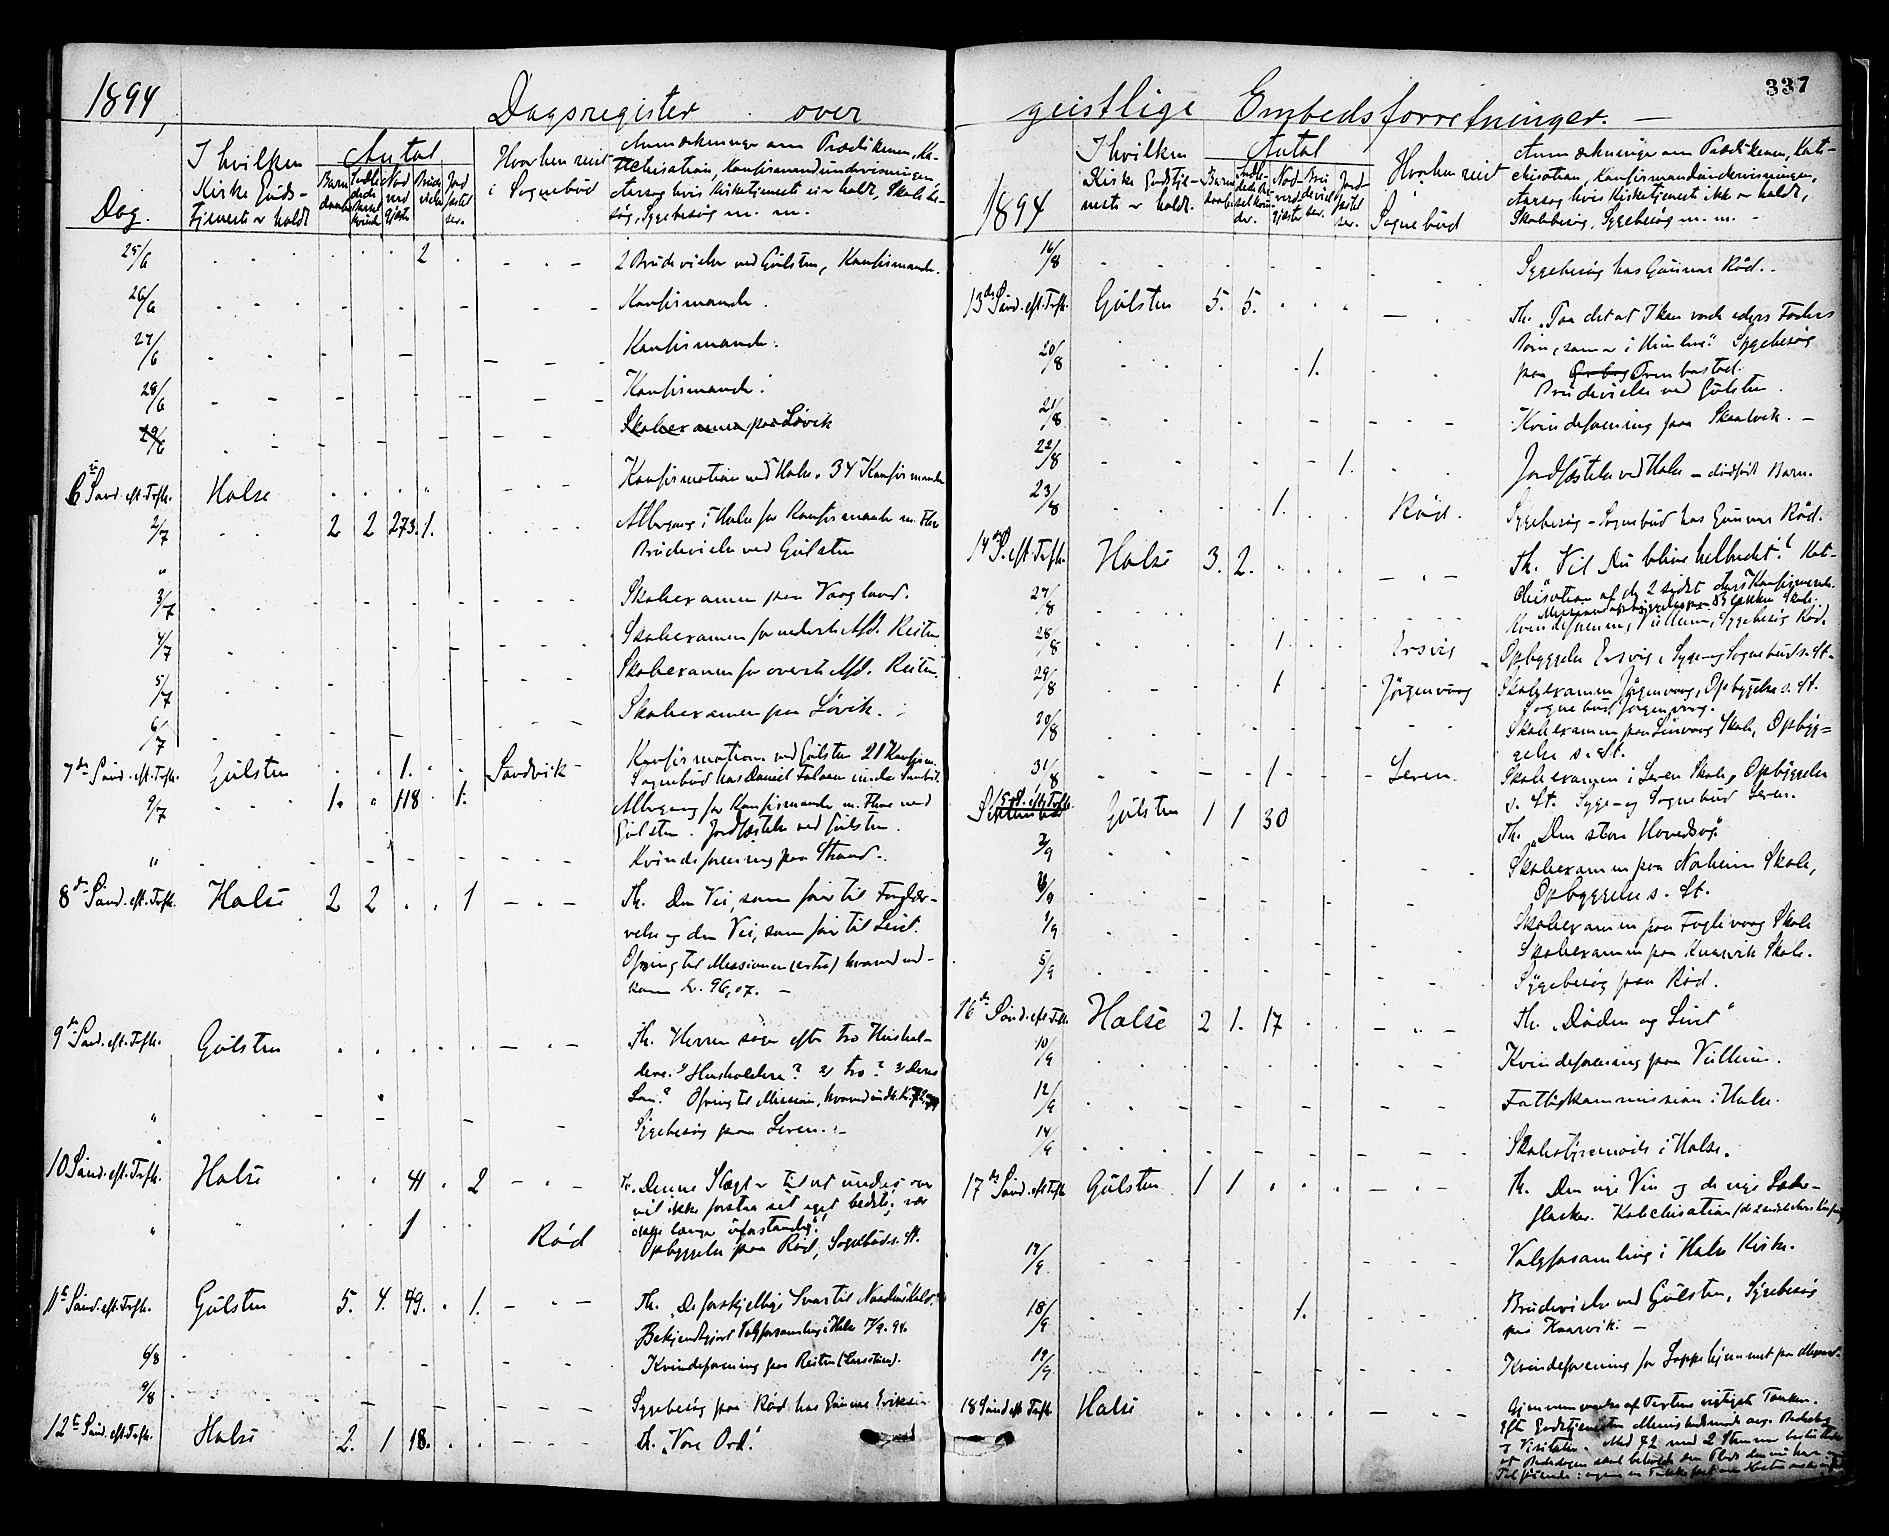 1894,
Dagsregister over
Dag.
I hvilken
Kirke Guds-
tjeneste er holdt
Antal
Barne
daabe
Nad
verd
gjester
Jord
fæstel
ser.
Hvorhen reist
i Sognebud
Anmærkninger om Prædikenen, Ka-
techisation, Konfirmandundervisningen
Aarsag hvis Kirketjeneste ei er holdt, Skolebe-
søg, Sygebesøg m. m.
25/6 2 2 Brudevielser ved Gulsten, Konfirmander.
26/6 Konfirmander.
27/6 Konfirmander.
28/6 Konfirmander.
29/6 Skoleexamen paa Løvik
6te Sønd. eft. Trft. Halse Konfirmation ved Halse. 34 Konfirmander
2/7 2 2 273. 1. Altergang i Halse for Konfirmander m. Flere
Brudevielse ved Gulsten
" Skoleexamen paa Vaagland.
3/7 Skoleexamen for nederste Afd. Reiten
4/7 Skoleexamen for øverste Afd. Reiten.
5/7 Skoleexamen paa Løvik.
6/7
7de Sønd. eft. Trft. Gulsten 1. Sandvik Konfirmation ved Gulsten 21 Konfirm.
Sognebud hos Daniel
9/7 1. 118 1. Altergang for Konfirmander m. Flere ved
Gulsten. Jordfæstelse ved Gulsten.
" Kvindeforening paa Strand.
8de Sønd. eft. Trft. Halse 2 2 1 Th. Den Vei, som fører til Fordær-
velse og den Vei, som fører til Livet.
Ofring til Missionen (extra) hvorved ind-
kom Kr. 96,07.
9de Sønd. eft. Trft. Gulsten Th. Herren søger efter tro Hushol-
dere. 1) Husholdere? 2) tro? 3) Deres
Løn? Ofring til Mission, hvorved indk.
" Sygebesøg paa Leren.
10 Sønd. eft. Trft. Halse 41 2 Th. Denne Slægt
vil ikke forstaa sit eget bedste; vær
ikke længer uforstandige!
" 1 Rød Opbyggelse paa Rød, Sognebud s. St.
11te Sønd. eft. Trft. Gulsten 5. 4. 49. 1. Th. "De forskjellige Svar til
Bekjendtgjort Valgforsamling i Halse 17/9. 94.
6/8 Kvindeforening paa Reiten
9/8 Sygebesøg paa Rød hos Gunnar Eriksen
12te Sønd. eft. Trft. Halse 2. 1 18. Th. "Vore Ord."
337
geistlige Embedsforretninger.
1894
I hvilken
Kirke Gudstje-
neste er holdt.
Antal
Barne
daabe
Jord-
fæstel
ser.
Hvorhen reist
i
Sognebud
Anmærkninger om Prædikenen, Kat-
echisation, Konfirmandundervisningen,
Aarsag hvis Kirketjeneste ikke er holdt,
Skolebesøg, Sygebesøg m. m.
16/8 Sygebesøg hos Gunnar Rød.
13de Sønd. eft. Trft. Gulsten 5. 5. Th. "Paa det at I kan vorde eders Faders
Børn, som er i Himlene." Sygebesøg
paa Ormbostad.
20/8 1. Brudevielse ved Gulsten.
21/8 Kvindeforening paa Skaalvik.
22/8 1. Jordfæstelse ved Halse – dødfødt Barn.
23/8 1. Rød. Sygebesøg – Sognebud hos Gunnar Rød.
14de S. eft. Trft. Halse 3. 2. Th. Vil Du blive helbredet? Kat-
echisation af de 2 sidst
27/8 Kvindeforening Vullum, Sygebesøg Rød.
28/8 1. Ersvig Opbyggelse Ersvig, Syge- og Sognebud s. St.
29/8 1 Jørgenvaag Skoleexamen Jørgenvaag, Opbyggelse s. St.
Sognebud Jørgenvaag.
30/8 Skoleexamen paa Linvaag Skole, Opbyg-
gelse s. St.
31/8 1 Leren. Skoleexamen i Leren Skole, Opbyggelse
s. St. Syge- og Sognebud Leren.
Gulsten 1 1 30 Th. "Den store Hovedsag."
3/9 Skoleexamen paa Norheim Skole,
Opbyggelse s. St.
Skoleexamen paa Fuglevaag Skole
Skoleexamen paa Knarvik Skole.
5/9 Sygebesøg paa Rød.
16de Sønd. eft. Trft. Halse 2 1. 17 Th. "Døden og Livet"
10/9 Kvindeforening paa Vullum.
12/9 Fattigkommission i Halse.
14/9 Skolestyremøde i Halse.
17de Sønd. eft. Trft. Gulsten 1 1 Th. Den nye Vin og de nye Læder-
flasker. Katechisation
17/9 Valgforsamling i Halse Kirke.
18/9 1. Brudevielse ved Gulsten, Sygebesøg
paa Knarvik.
19/9 Kvindeforening for
18 Sønd eft Trft. Halse Gjennemgaaelse af Textens vigtigste Tanker.
Eft. Gudstjenesten Menighedsmøde